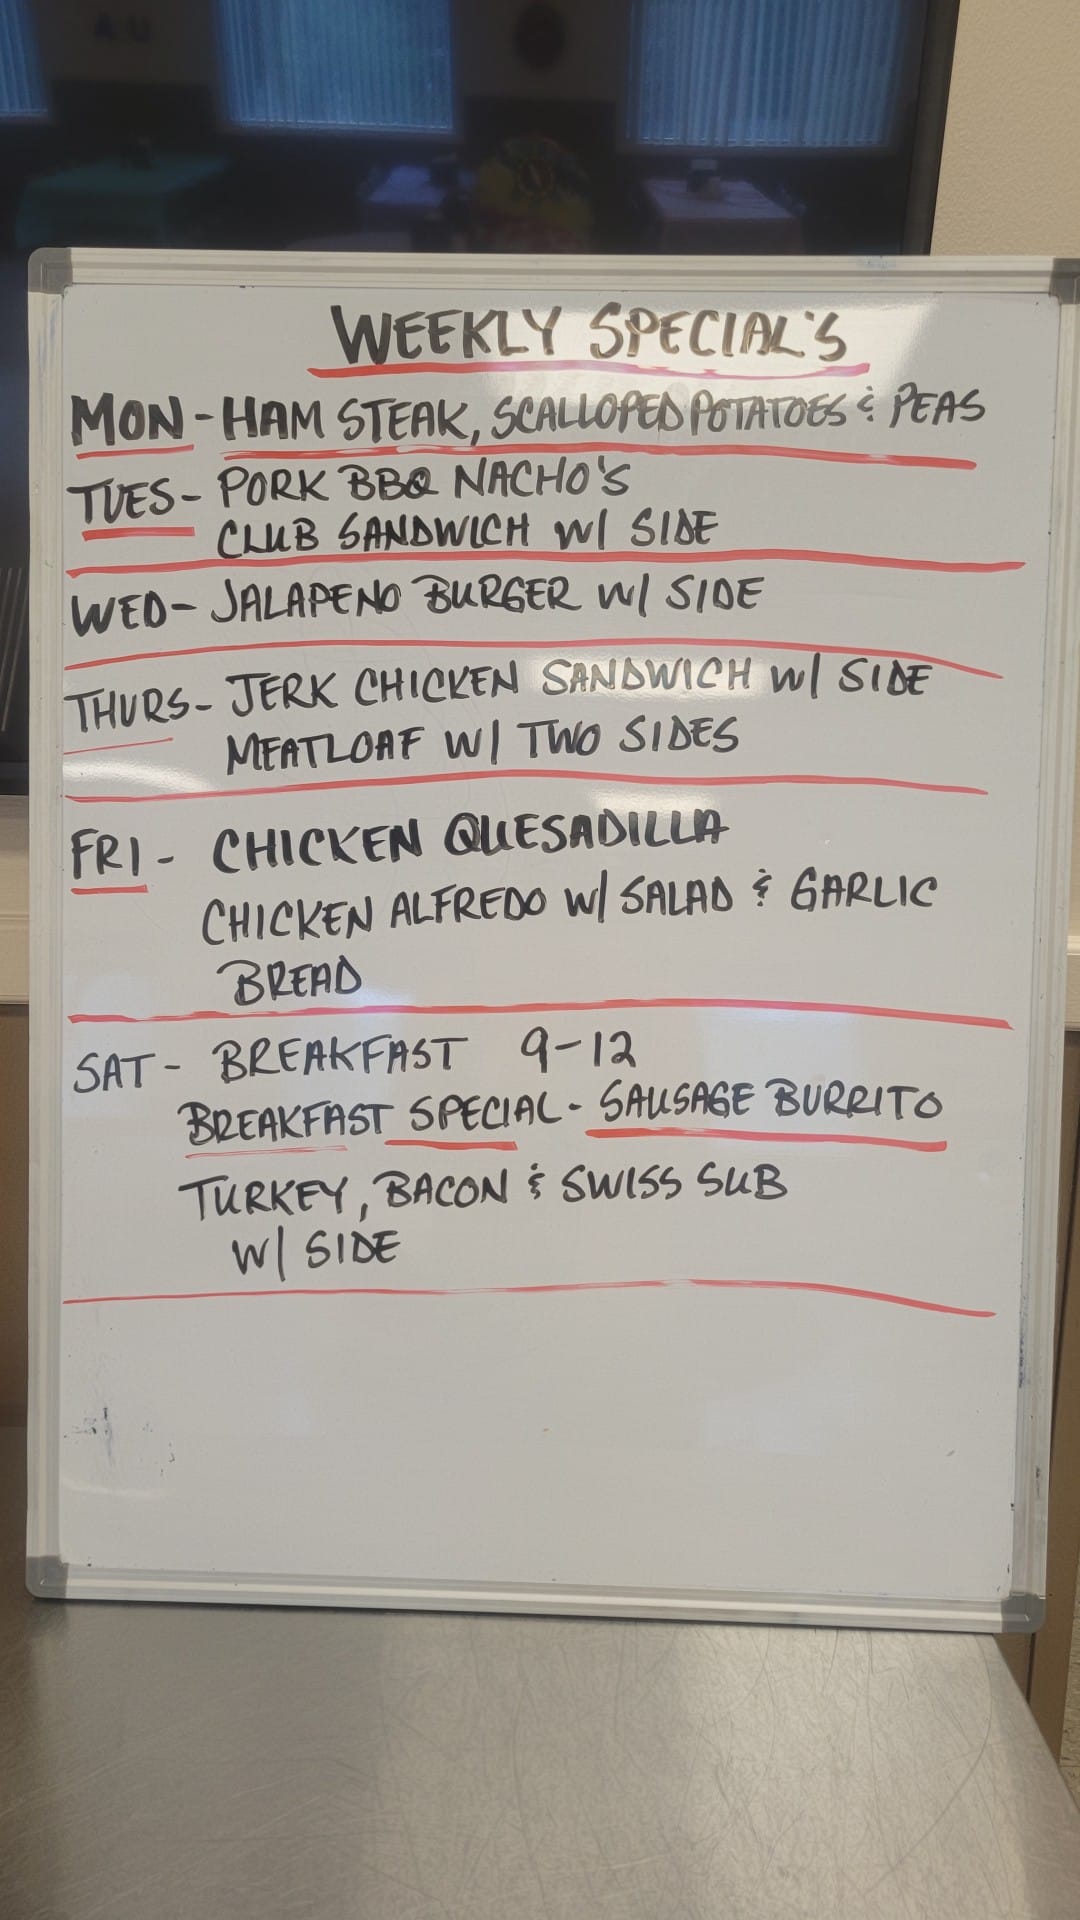 WEEKLY SPECIAL'S
MON - HAM STEAK, SCALLOPED POTATOES & PEAS
TUES - PORK BBQ NACHO'S
CLUB SANDWICH W/ SIDE
WED - JALAPENO BURGER W/ SIDE
THURS - JERK CHICKEN SANDWICH W/ SIDE
MEATLOAF W/ TWO SIDES
FRI - CHICKEN QUESADILLA
CHICKEN ALFREDO W/ SALAD & GARLIC
BREAD
SAT - BREAKFAST 9-12
BREAKFAST SPECIAL - SAUSAGE BURRITO
TURKEY, BACON & SWISS SUB
W/ SIDE